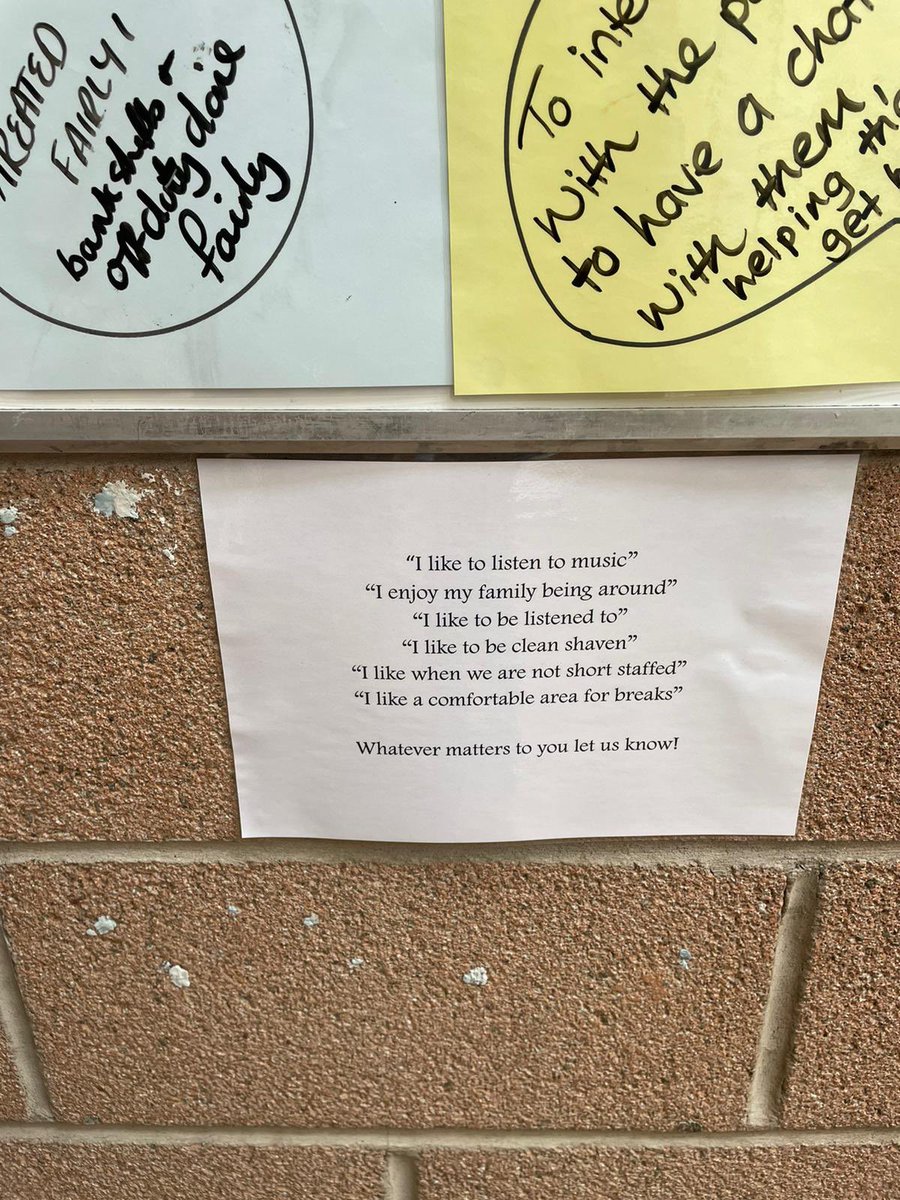 TREATED
FAIRLY!
bank shifts +
off duty done
fairly
To
with the
to have a chat
with them,
helping
get
“I like to listen to music”
“I enjoy my family being around”
“I like to be listened to”
“I like to be clean shaven”
“I like when we are not short staffed”
“I like a comfortable area for breaks”
Whatever matters to you let us know!